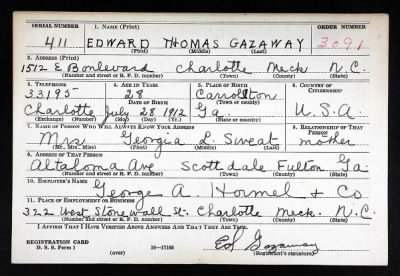 SERIAL NUMBER 1. NAME (Print) ORDER NUMBER
411 EDWARD THOMAS GAZAWAY 3091
(First) (Middle) (Last)
2. ADDRESS (Print)
1512 E Boulevard Charlotte Meck N.C.
(Number and street or R. F. D. number) (Town) (County) (State)
3. TELEPHONE 4. AGE IN YEARS 5. PLACE OF BIRTH 6. COUNTRY OF CITIZENSHIP
33195 28 Carrollton
DATE OF BIRTH (Town or county)
Charlotte July 28 1912 Ga. U.S.A.
(Exchange) (Number) (Mo.) (Day) (Yr.) (State or country)
7. NAME OF PERSON WHO WILL ALWAYS KNOW YOUR ADDRESS 8. RELATIONSHIP OF THAT PERSON
Mrs Georgia L. Sweat mother
(Mr., Mrs., Miss) (First) (Middle) (Last)
9. ADDRESS OF THAT PERSON
Altaloma Ave Scottdale Fulton Ga.
(Number and street or R. F. D. number) (Town) (County) (State)
10. EMPLOYER'S NAME
George A Hormel & Co
11. PLACE OF EMPLOYMENT OR BUSINESS
322 West Stonewall St. Charlotte Meck. N.C.
(Number and street or R. F. D. number) (Town) (County) (State)
I AFFIRM THAT I HAVE VERIFIED ABOVE ANSWERS AND THAT THEY ARE TRUE.
REGISTRATION CARD
D. S. S. Form 1 (over) 16-17105 Ed Gazaway
(Registrant's signature)